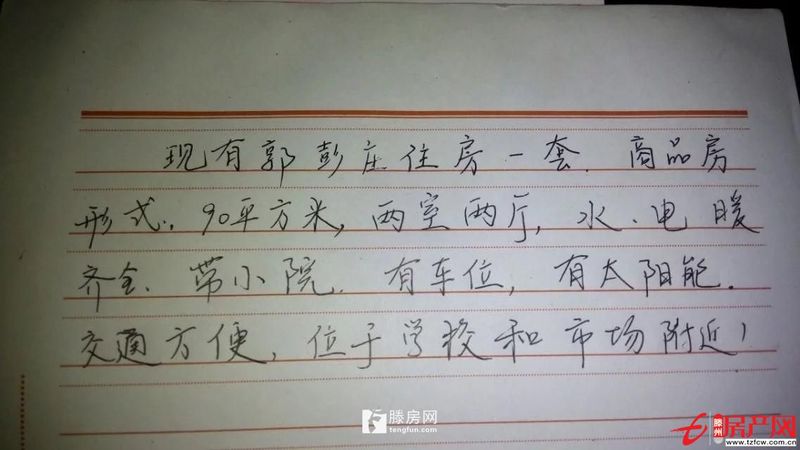 现有郭彭庄住房一套.商品房
形式,90平方米,两室两厅,水、电暖
齐全.带小院.有车位,有太阳能.
交通方便,位于学校和市场附近!
滕房网
tengfun.com
滕州
房产网
www.tzfcw.com.cn